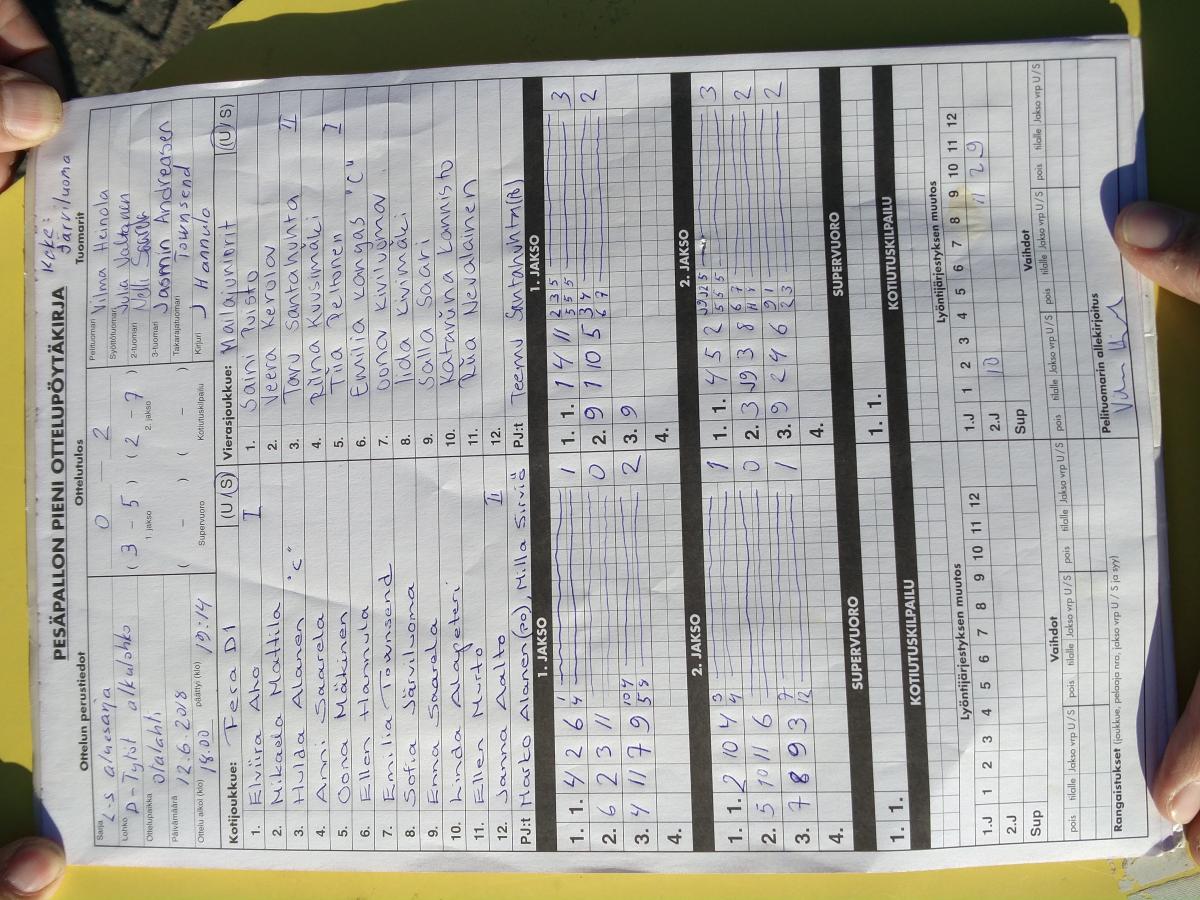 PESÄPALLON PIENI OTTELUPÖYTÄKIRJA
Koke:
Järviluoma
Ottelun perustiedot
Sarja L-S aluesarja
Lohko D-Tytöt alkulohko
Ottelupaikka Otalahti
Päivämäärä 12.6.2018
Ottelu alkoi (klo) 18.00 päättyi (klo) 19:14
Ottelutulos
0 – 2
( 3 – 5 ) ( 2 – 7 )
1. jakso 2. jakso
( – ) ( – )
Supervuoro Kotiutuskilpailu
Tuomarit
Pelituomari Vilma Heinola
Syöttötuomari Julia
2-tuomari Nelli
3-tuomari Jasmin Andreasen
Takarajatuomari Townsend
Kirjuri J Hannula
Kotijoukkue: Fera D1 (U/S)
1. Elviira Aho I
2. Mikaela Mattila
3. Hulda Alanen "C"
4. Anni Saarela
5. Oona Mäkinen
6. Ellen Hannula
7. Emilia Townsend
8. Sofia Järviluoma
9. Enna Saarela
10. Linda Alapeteri
11. Ellen Murto
12. Janna Aalto II
PJ:t Marko Alanen (PO), Milla Sirviö
Vierasjoukkue: Mailajuniorit (U/S)
1. Saini Puisto
2. Veera Kerola
3. Taru Santahuhta II
4. Riina Kuusimäki
5. Tiia Peltonen I
6. Emilia Kangas "C"
7. Oona Kiviluoma
8. Iida Kivimäki
9. Salla Saari
10. Katariina Lannisto
11. Riia Nevalainen
12.
PJ:t Teemu Santahuhta
1. JAKSO
1. 1. 4 2 6 1 4 1
2. 6 2 3 11 0
3. 4 11 7 9 10 4 5 8 2
4.
1. JAKSO
1. 1. 1 4 11 2 3 5 5 5 5 3
2. 9 1 10 5 3 4 6 7 2
3. 9
4.
2. JAKSO
1. 1. 2 10 4 3 4 1
2. 5 10 11 6 0
3. 7 8 9 3 7 12 1
4.
2. JAKSO
1. 1. 4 5 2 5 5 5 3
2. 3 J9 3 8 6 7 2
3. 9 2 4 6 9 1 2 3 2
4.
SUPERVUORO
1. 1.
SUPERVUORO
1. 1.
KOTIUTUSKILPAILU
KOTIUTUSKILPAILU
Lyöntijärjestyksen muutos
1 2 3 4 5 6 7 8 9 10 11 12
1.J
2.J
Sup
Lyöntijärjestyksen muutos
1 2 3 4 5 6 7 8 9 10 11 12
1.J 11 2 9
2.J 10
Sup
Vaihdot
pois tilalle Jakso vrp U/S pois tilalle Jakso vrp U/S pois tilalle Jakso vrp U/S
Vaihdot
pois tilalle Jakso vrp U/S pois tilalle Jakso vrp U/S pois tilalle Jakso vrp U/S
Rangaistukset (joukkue, pelaaja nro, jakso vrp U/S ja syy)
Pelituomarin allekirjoitus